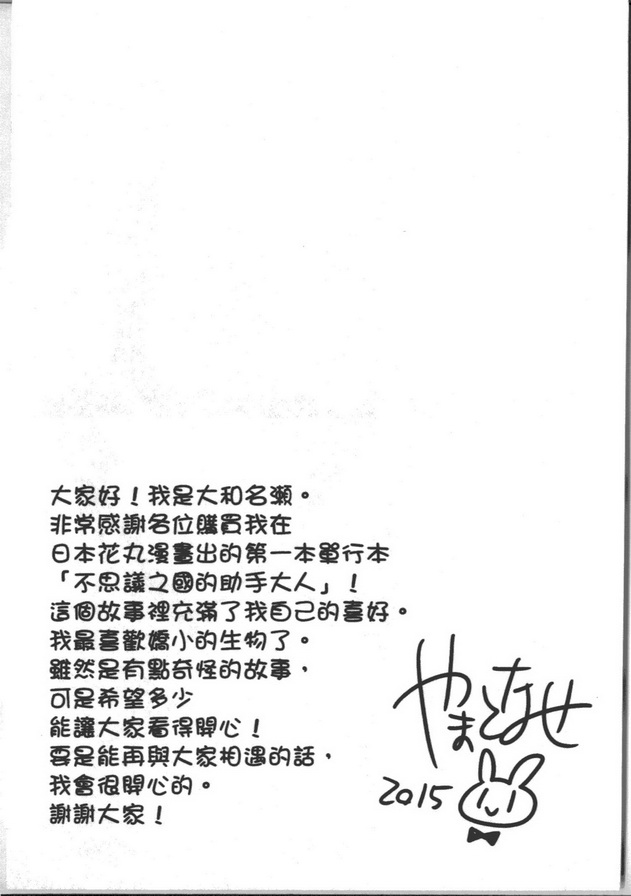 大家好！我是大和名瀨。
非常感謝各位購買我在
日本花丸漫畫出的第一本單行本
「不思議之國的助手大人」！
這個故事裡充滿了我自己的喜好。
我最喜歡嬌小的生物了。
雖然是有點奇怪的故事，
可是希望多少
能讓大家看得開心！
要是能再與大家相遇的話，
我會很開心的。
謝謝大家！
やまとなせ
2015